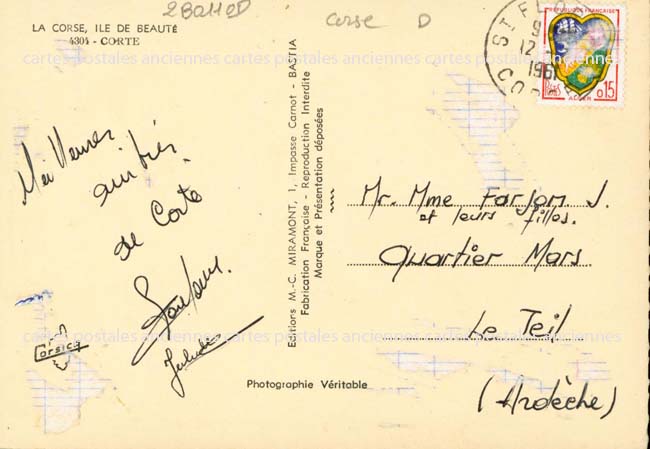 2B0110D
Corse D
LA CORSE, ILE DE BEAUTÉ
4304 - CORTE
Meilleures
amitiés
de Corte
Corsica
Editions M.-C. MIRAMONT, 1, Impasse Carnot - BASTIA
Fabrication Française - Reproduction Interdite
Marque et Présentation déposées
Photographie Véritable
ST FL
9
12
196
CO
RÉPUBLIQUE FRANÇAISE
POSTES
0,15
ALGER
Mr. Mme Farjon J.
et leurs filles.
Quartier Mars
Le Teil
(Ardèche)
cartes postales anciennes cartes postales anciennes cartes postales anciennes
cartes postales anciennes cartes postales anciennes cartes postales anciennes